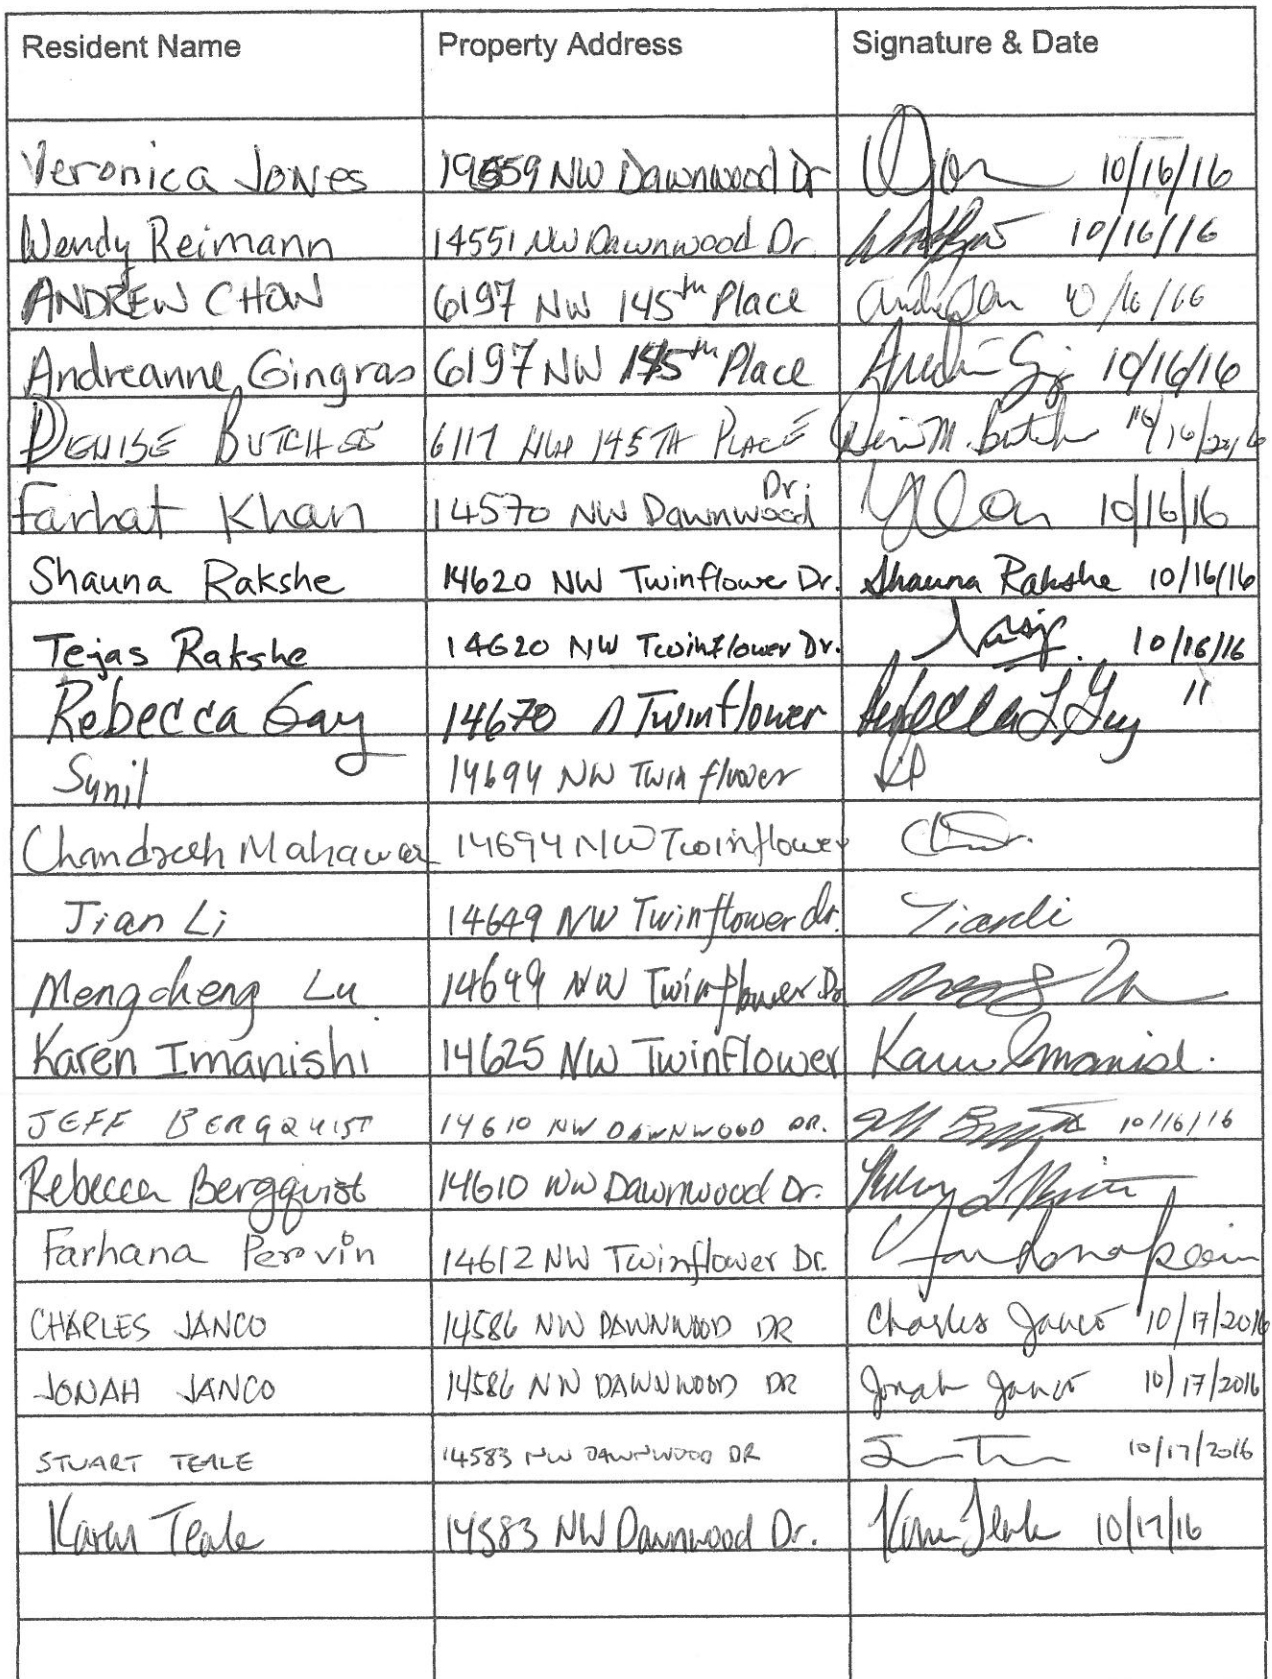 Resident Name Property Address Signature & Date
Veronica Jones 19559 NW Dawnwood Dr 10/16/16
Wendy Reimann 14551 NW Dawnwood Dr. 10/16/16
ANDREW CHOW 6197 NW 145th Place 10/16/16
Andreanne Gingras 6197 NW 145th Place 10/16/16
DENISE BUTCHER 6117 NW 145TH PLACE Denise M. Butch 10/16/2016
Farhat Khan 14570 NW Dawnwood Dr. 10/16/16
Shauna Rakshe 14620 NW Twinflower Dr. Shauna Rakshe 10/16/16
Tejas Rakshe 14620 NW Twinflower Dr. 10/16/16
Rebecca Gay 14670 N Twinflower Rebecca L. Guy "
Sunil 14694 NW Twin flower
Chandresh Mahawar 14694 NW Twinflower
Jian Li 14649 NW Twinflower dr. Jianli
Mengcheng Lu 14649 NW Twinflower Dr
Karen Imanishi 14625 NW Twinflower Karen Imanishi
JEFF BERGQUIST 14610 NW DAWNWOOD DR. 10/16/16
Rebecca Bergquist 14610 NW Dawnwood Dr.
Farhana Pervin 14612 NW Twinflower Dr. Farhana Pervin
CHARLES JANCO 14586 NW DAWNWOOD DR Charles Janco 10/17/2016
JONAH JANCO 14586 NW DAWNWOOD DR Jonah Janco 10/17/2016
STUART TEALE 14583 NW DAWNWOOD DR 10/17/2016
Karen Teale 14583 NW Dawnwood Dr. Karen Teale 10/17/16